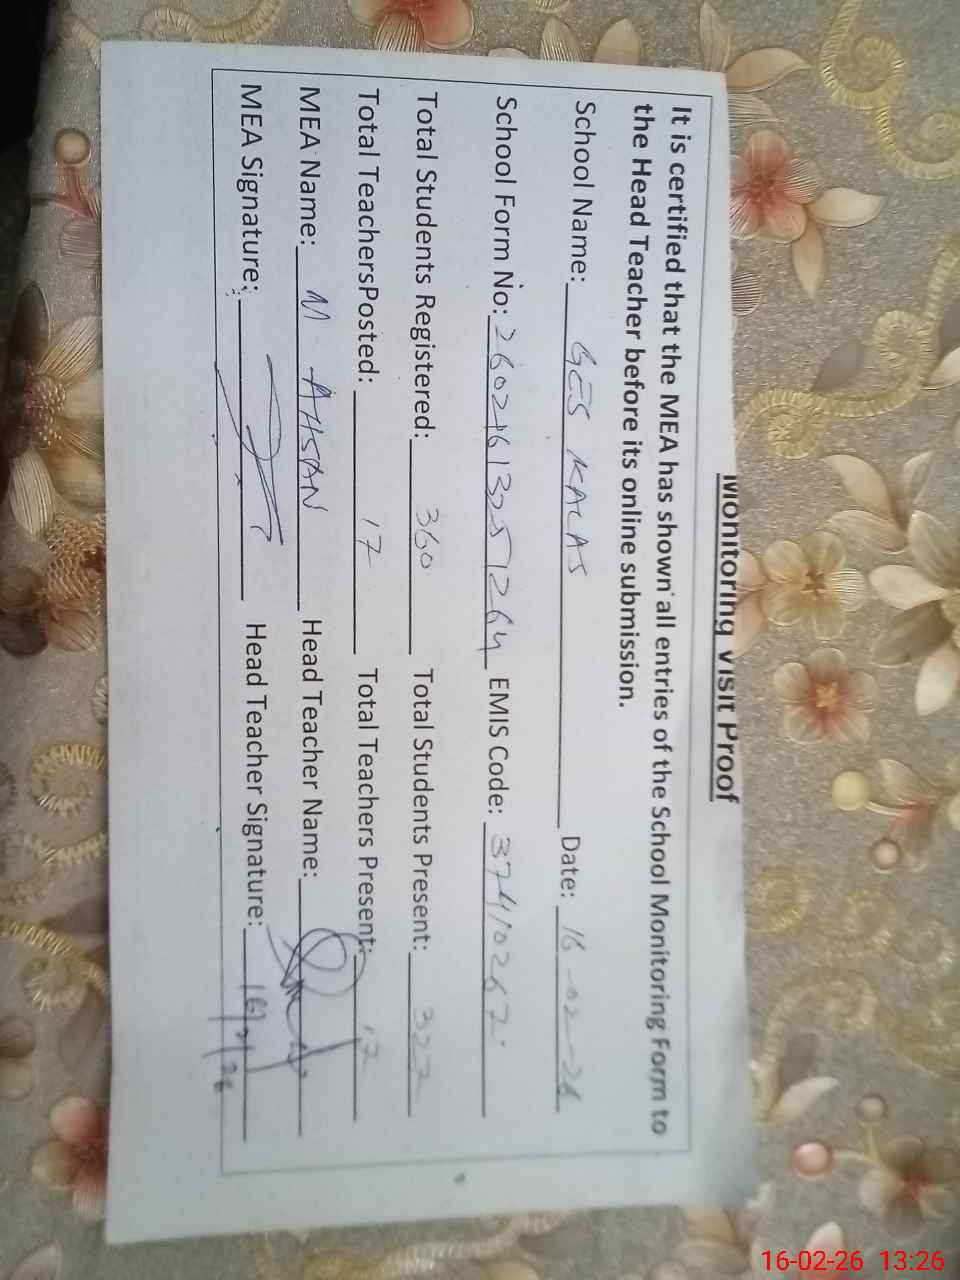 Monitoring Visit Proof
It is certified that the MEA has shown all entries of the School Monitoring Form to
the Head Teacher before its online submission.
School Name: GES KALAS Date: 16-02-26
School Form No: EMIS Code: 37410267
Total Students Registered: 360 Total Students Present: 327
Total TeachersPosted: 17 Total Teachers Present: 17
MEA Name: M AHSAN Head Teacher Name:
MEA Signature: Head Teacher Signature: 16/2/26
16-02-26 13:26